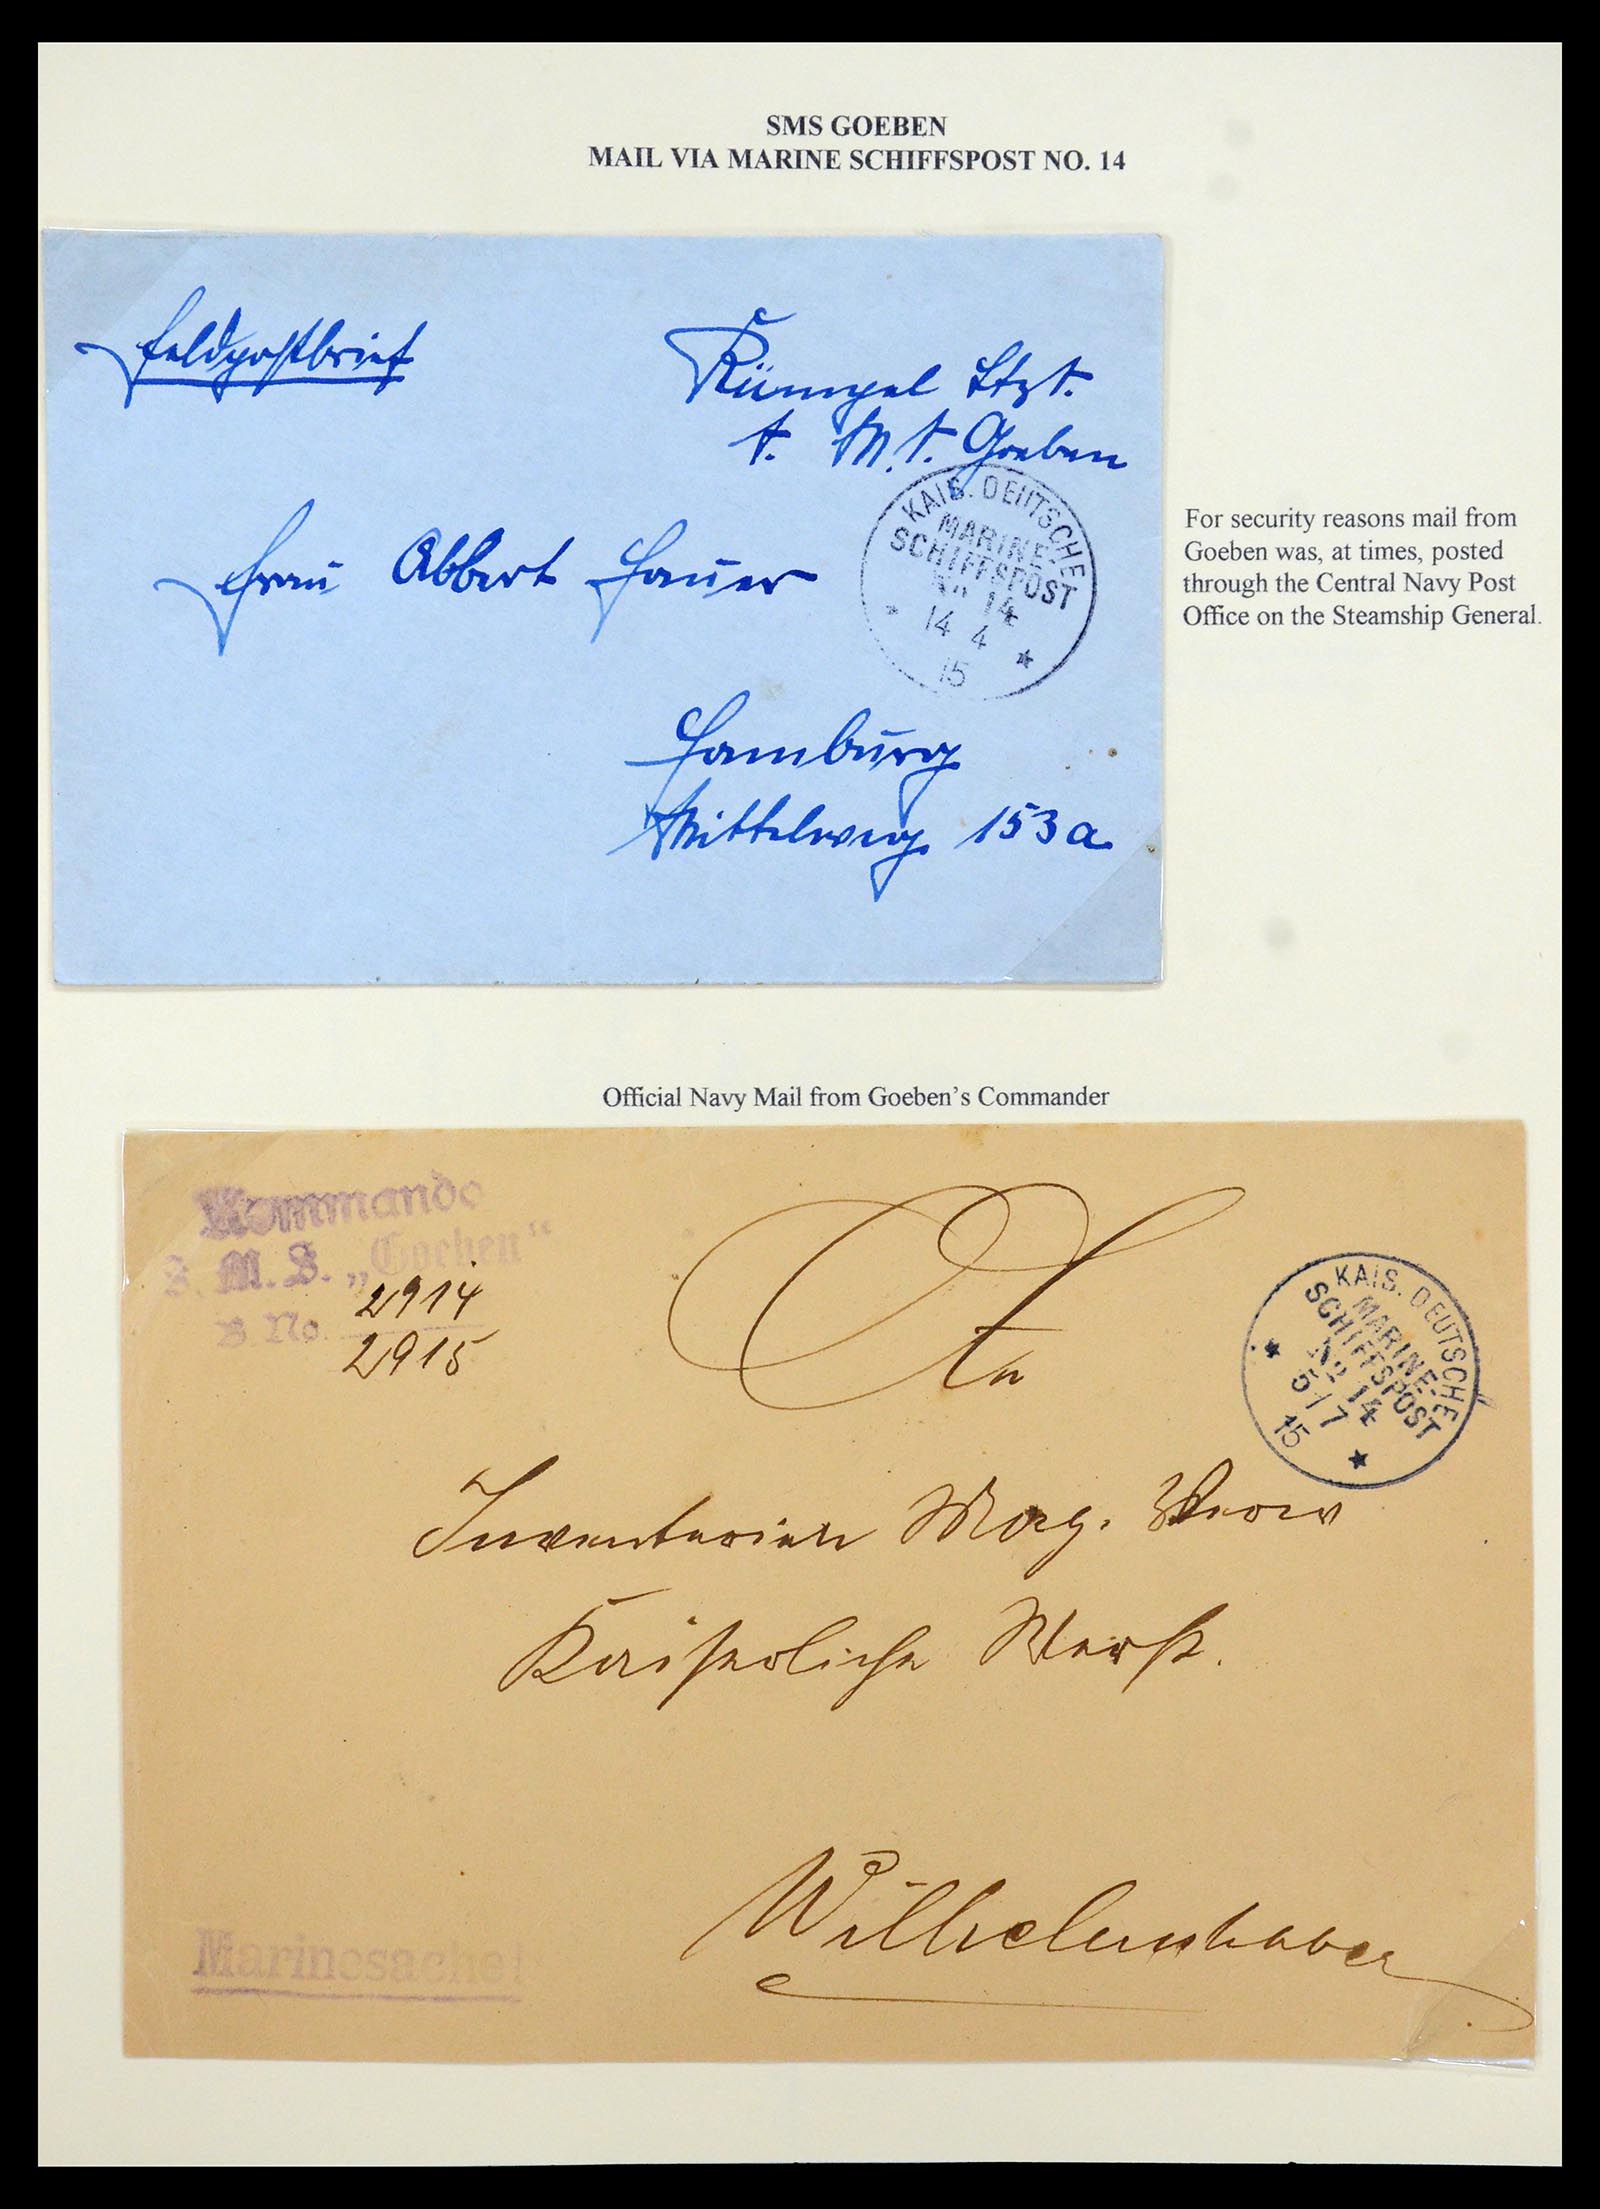 SMS GOEBEN
MAIL VIA MARINE SCHIFFSPOST NO. 14
Feldpostbrief
Rümpel
S. M. S. Goeben
KAIS. DEUTSCHE
MARINE-
SCHIFFSPOST
No 14
* 14 4 *
15
Frau Albert Hauer
Hamburg
Mittelweg 153a
For security reasons mail from
Goeben was, at times, posted
through the Central Navy Post
Office on the Steamship General.
Official Navy Mail from Goeben's Commander
Kommando
S. M. S. „Goeben"
B. No. 2914
2915
An
KAIS. DEUTSCHE
MARINE-
SCHIFFSPOST
No 14
* 5/7 *
15
Inventarien Mag.
Kaiserliche Werft.
Wilhelmshaven
Marinesache!